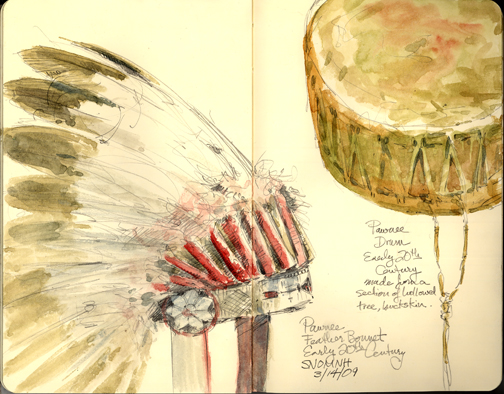 Pawnee
Drum
Early 20th
Century
made from a
section of hollowed
tree, buckskin.
Pawnee
Feather Bonnet
Early 20th Century
SNOMNH
3/14/09